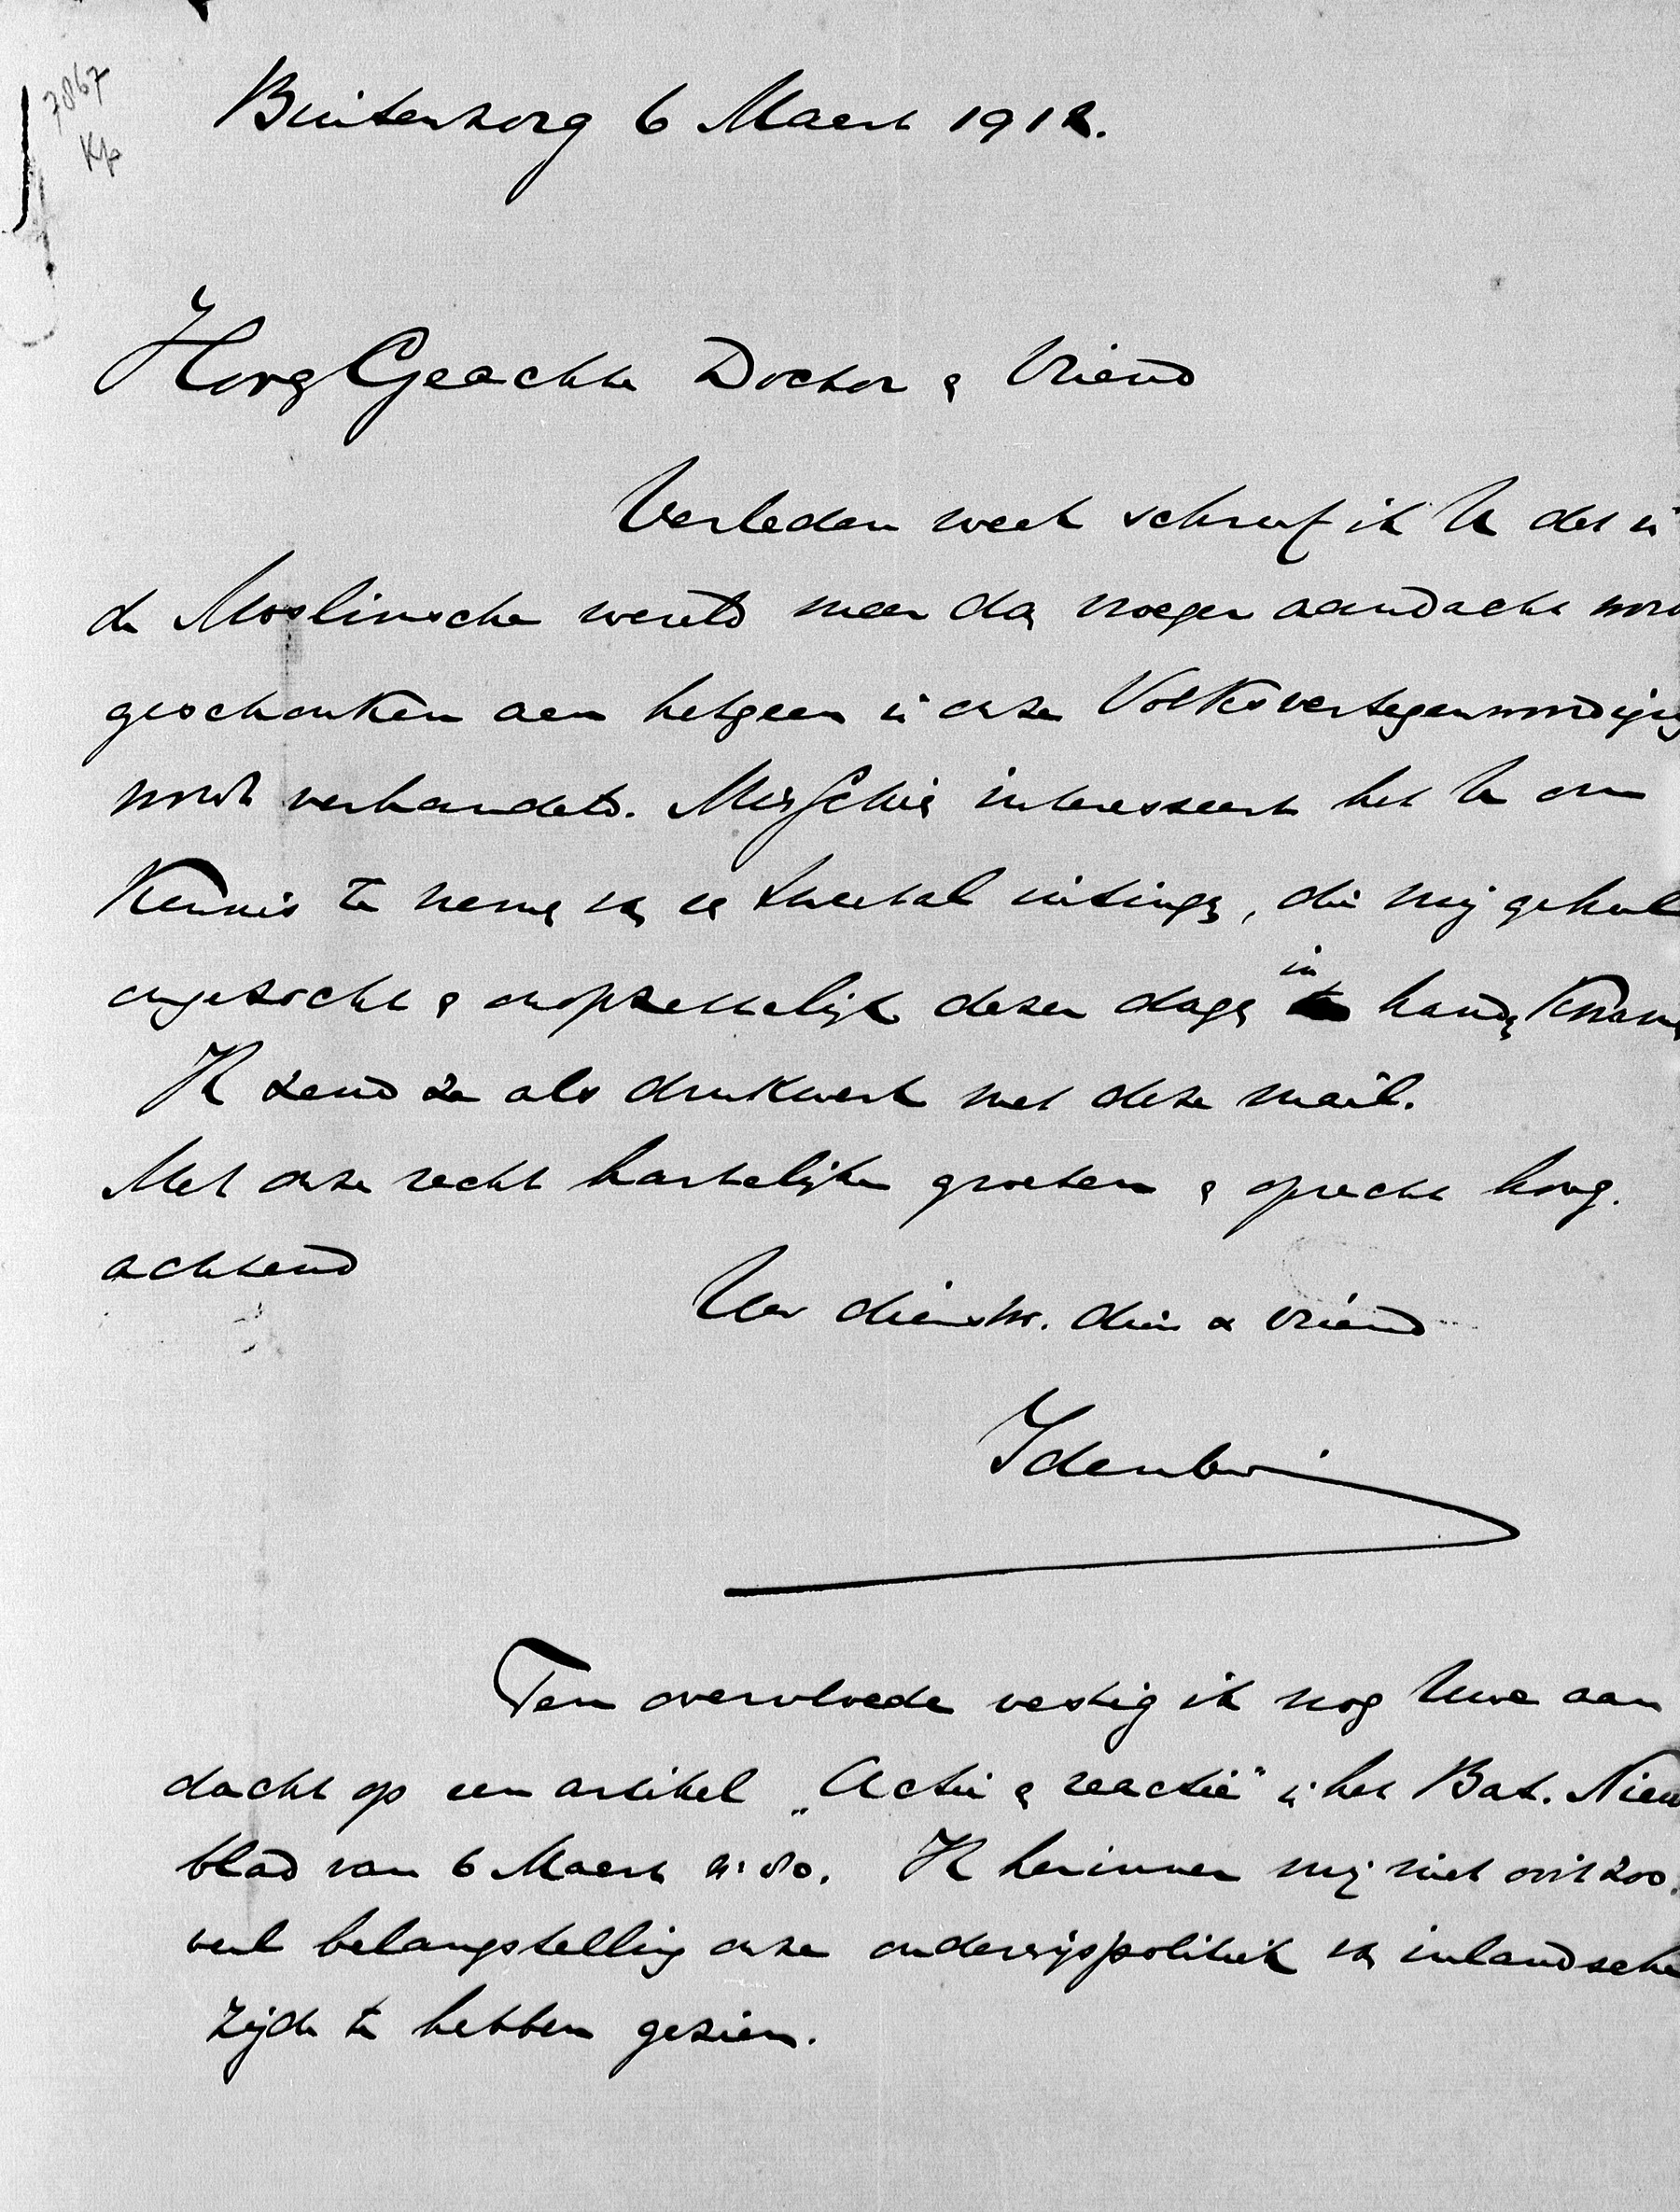 7867
Kp
Buitenzorg 6 Maart 1912.
HoogGeachte Doctor & Vriend
Verleden week schreef ik U dat in
de Moslimsche wereld meer dan vroeger aandacht word
geschonken aan hetgeen in onze Volksvertegenwoordiging
wordt verhandeld. Misschien interesseert het U om
Kennis te nemen van een tweetal uitingen, die mij geheel
ongezocht & onopzettelijk dezer dagen in handen kwamen
Ik zend ze als drukwerk met deze mail.
Met onze recht hartelijke groeten & oprecht hoog.
achtend
Uw dienstw. dien & vriend
Idenburg
Ten overvloede vestig ik nog Uwe aan
dacht op een artikel „Actie & reactie" in het Bat. Nieuws
blad van 6 Maart n: 80. Ik herinner mij niet ooit zoo.
veel belangstelling onze onderwijspolitiek van inlandsche
zijde te hebben gezien.